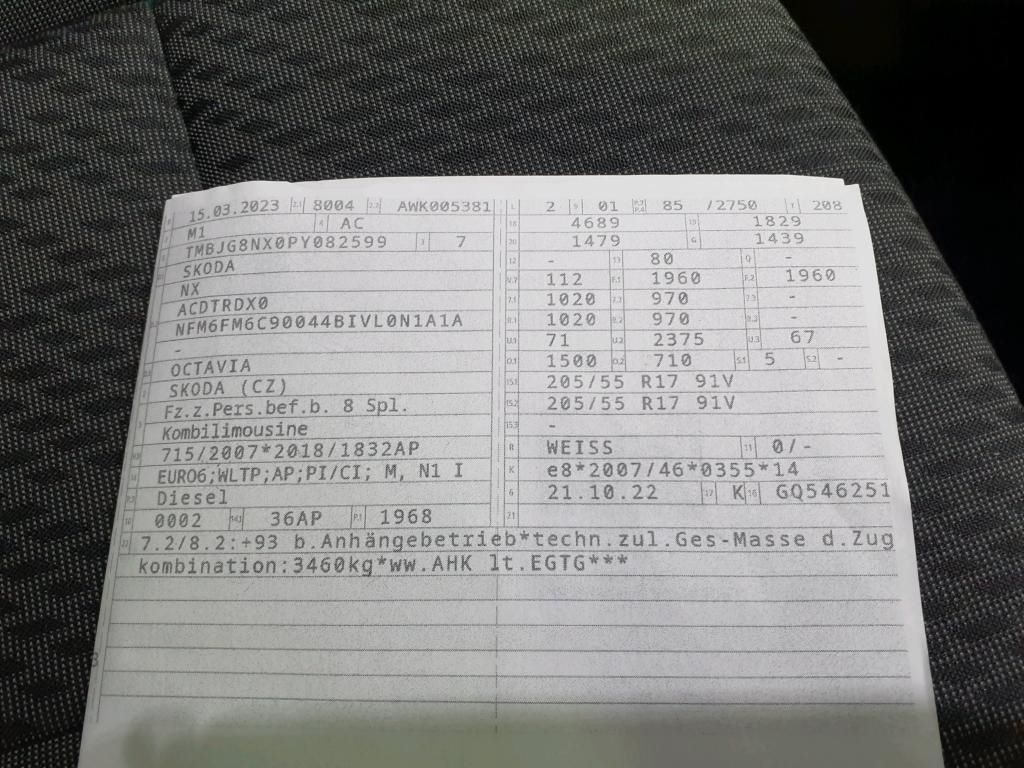 15.03.2023 2.1 8004 2.2 AWK005381
M1 4 AC
TMBJG8NX0PY082599 3 7
SKODA
NX
ACDTRDX0
NFM6FM6C90044BIVL0N1A1A
-
OCTAVIA
SKODA (CZ)
Fz.z.Pers.bef.b. 8 Spl.
Kombilimousine
715/2007*2018/1832AP
EURO6;WLTP;AP;PI/CI; M, N1 I
Diesel
0002 14.1 36AP P.1 1968
L 2 9 01 P.2 P.4 85 /2750 T 208
18 4689 19 1829
20 1479 G 1439
12 - 13 80 Q -
V.7 112 F.1 1960 F.2 1960
7.1 1020 7.2 970 7.3 -
8.1 1020 8.2 970 8.3 -
U.1 71 U.2 2375 U.3 67
O.1 1500 O.2 710 S.1 5 S.2 -
15.1 205/55 R17 91V
15.2 205/55 R17 91V
15.3 -
R WEISS 11 0/-
K e8*2007/46*0355*14
6 21.10.22 17 K 16 GQ546251
21
22 7.2/8.2:+93 b.Anhängebetrieb*techn.zul.Ges-Masse d.Zug
kombination:3460kg*ww.AHK lt.EGTG***